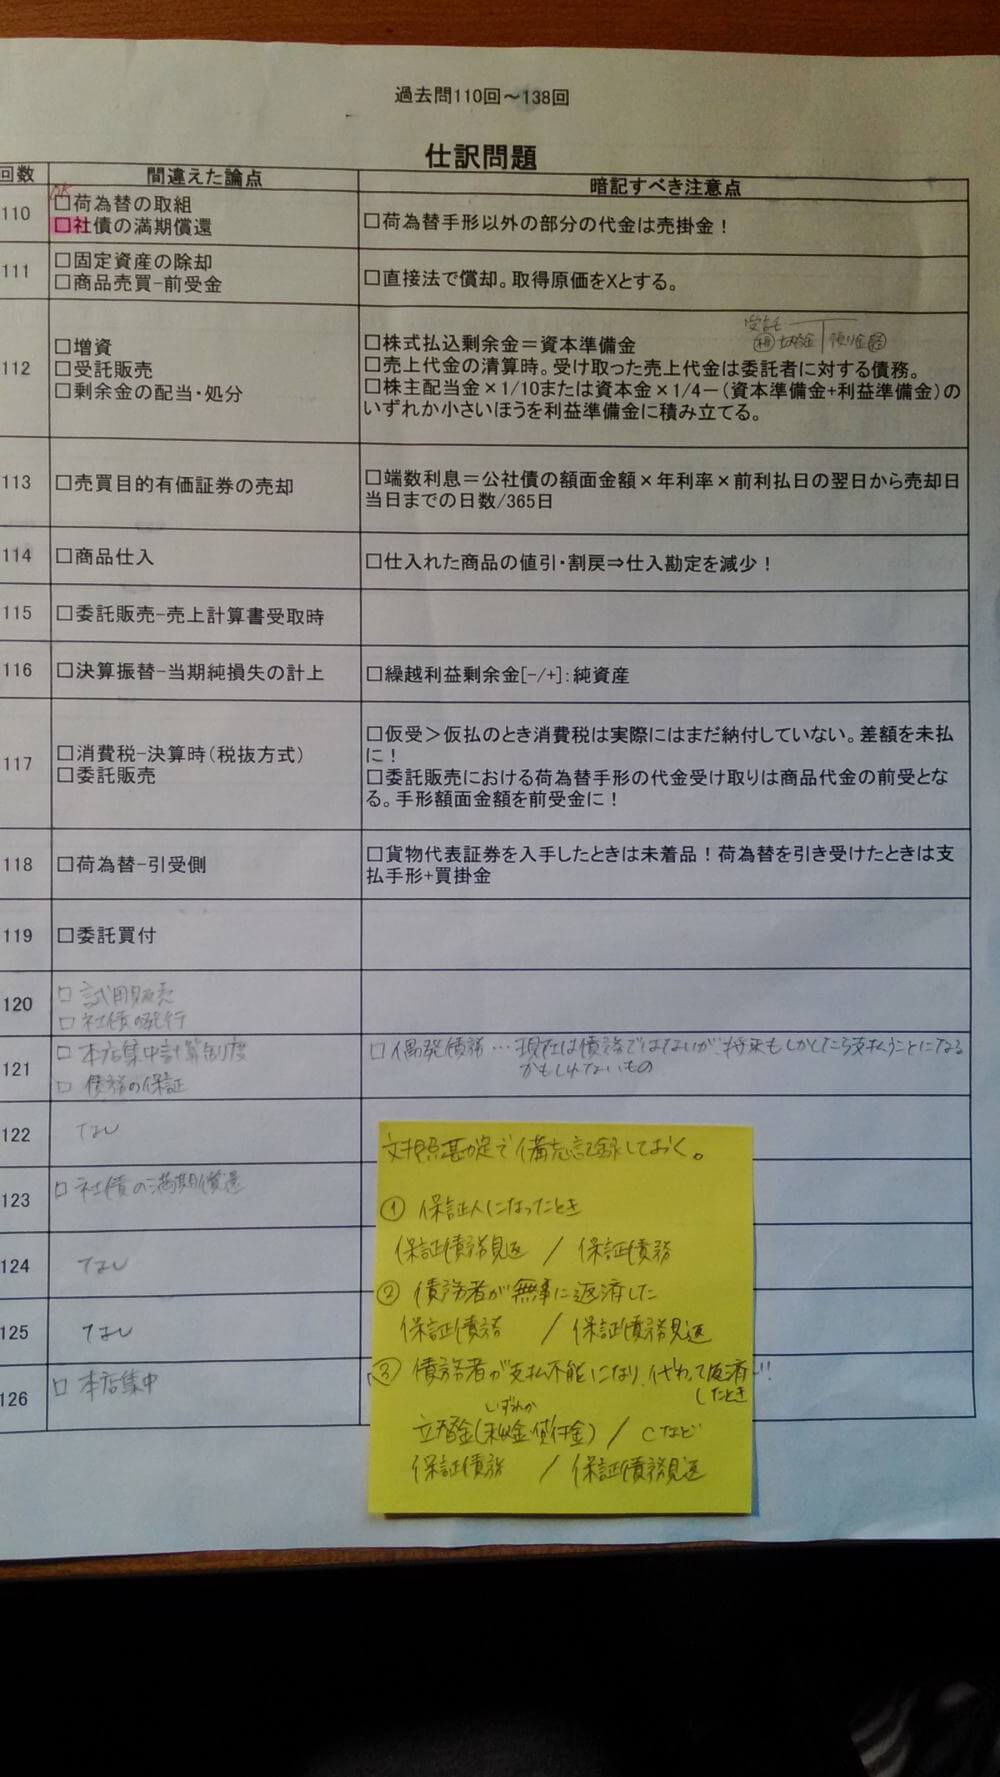 過去問110回～138回
仕訳問題
回数 間違えた論点 暗記すべき注意点
OK
110 □荷為替の取組
□社債の満期償還
□荷為替手形以外の部分の代金は売掛金！
111 □固定資産の除却
□商品売買-前受金
□直接法で償却。取得原価をXとする。
112 □増資
□受託販売
□剰余金の配当・処分
受託
□株式払込剰余金＝資本準備金
□売上代金の清算時。受け取った売上代金は委託者に対する債務。
□株主配当金×1/10または資本金×1/4－(資本準備金+利益準備金)の
いずれか小さいほうを利益準備金に積み立てる。
113 □売買目的有価証券の売却
□端数利息＝公社債の額面金額×年利率×前利払日の翌日から売却日
当日までの日数/365日
114 □商品仕入 □仕入れた商品の値引・割戻⇒仕入勘定を減少！
115 □委託販売-売上計算書受取時
116 □決算振替-当期純損失の計上 □繰越利益剰余金[-/+]：純資産
117 □消費税-決算時(税抜方式)
□委託販売
□仮受＞仮払のとき消費税は実際にはまだ納付していない。差額を未払
に！
□委託販売における荷為替手形の代金受け取りは商品代金の前受とな
る。手形額面金額を前受金に！
118 □荷為替-引受側
□貨物代表証券を入手したときは未着品！荷為替を引き受けたときは支
払手形+買掛金
119 □委託買付
120 □ 試用販売
□ 社債の発行
121 □ 本店集中計算制度
□ 債務の保証
□ 偶発債務…現在は債務ではないが、将来もしかしたら支払うことになる
かもしれないもの
122 なし
123 □ 社債の満期償還
124 なし
125 なし
126 □ 本店集中
対照勘定で備忘記録しておく。
① 保証人になったとき
保証債務見返 / 保証債務
② 債務者が無事に返済した
保証債務 / 保証債務見返
③ 債務者が支払不能になり、代わって返済!!
したとき
いずれか
立替金(未収金・貸付金) / Cなど
保証債務 / 保証債務見返